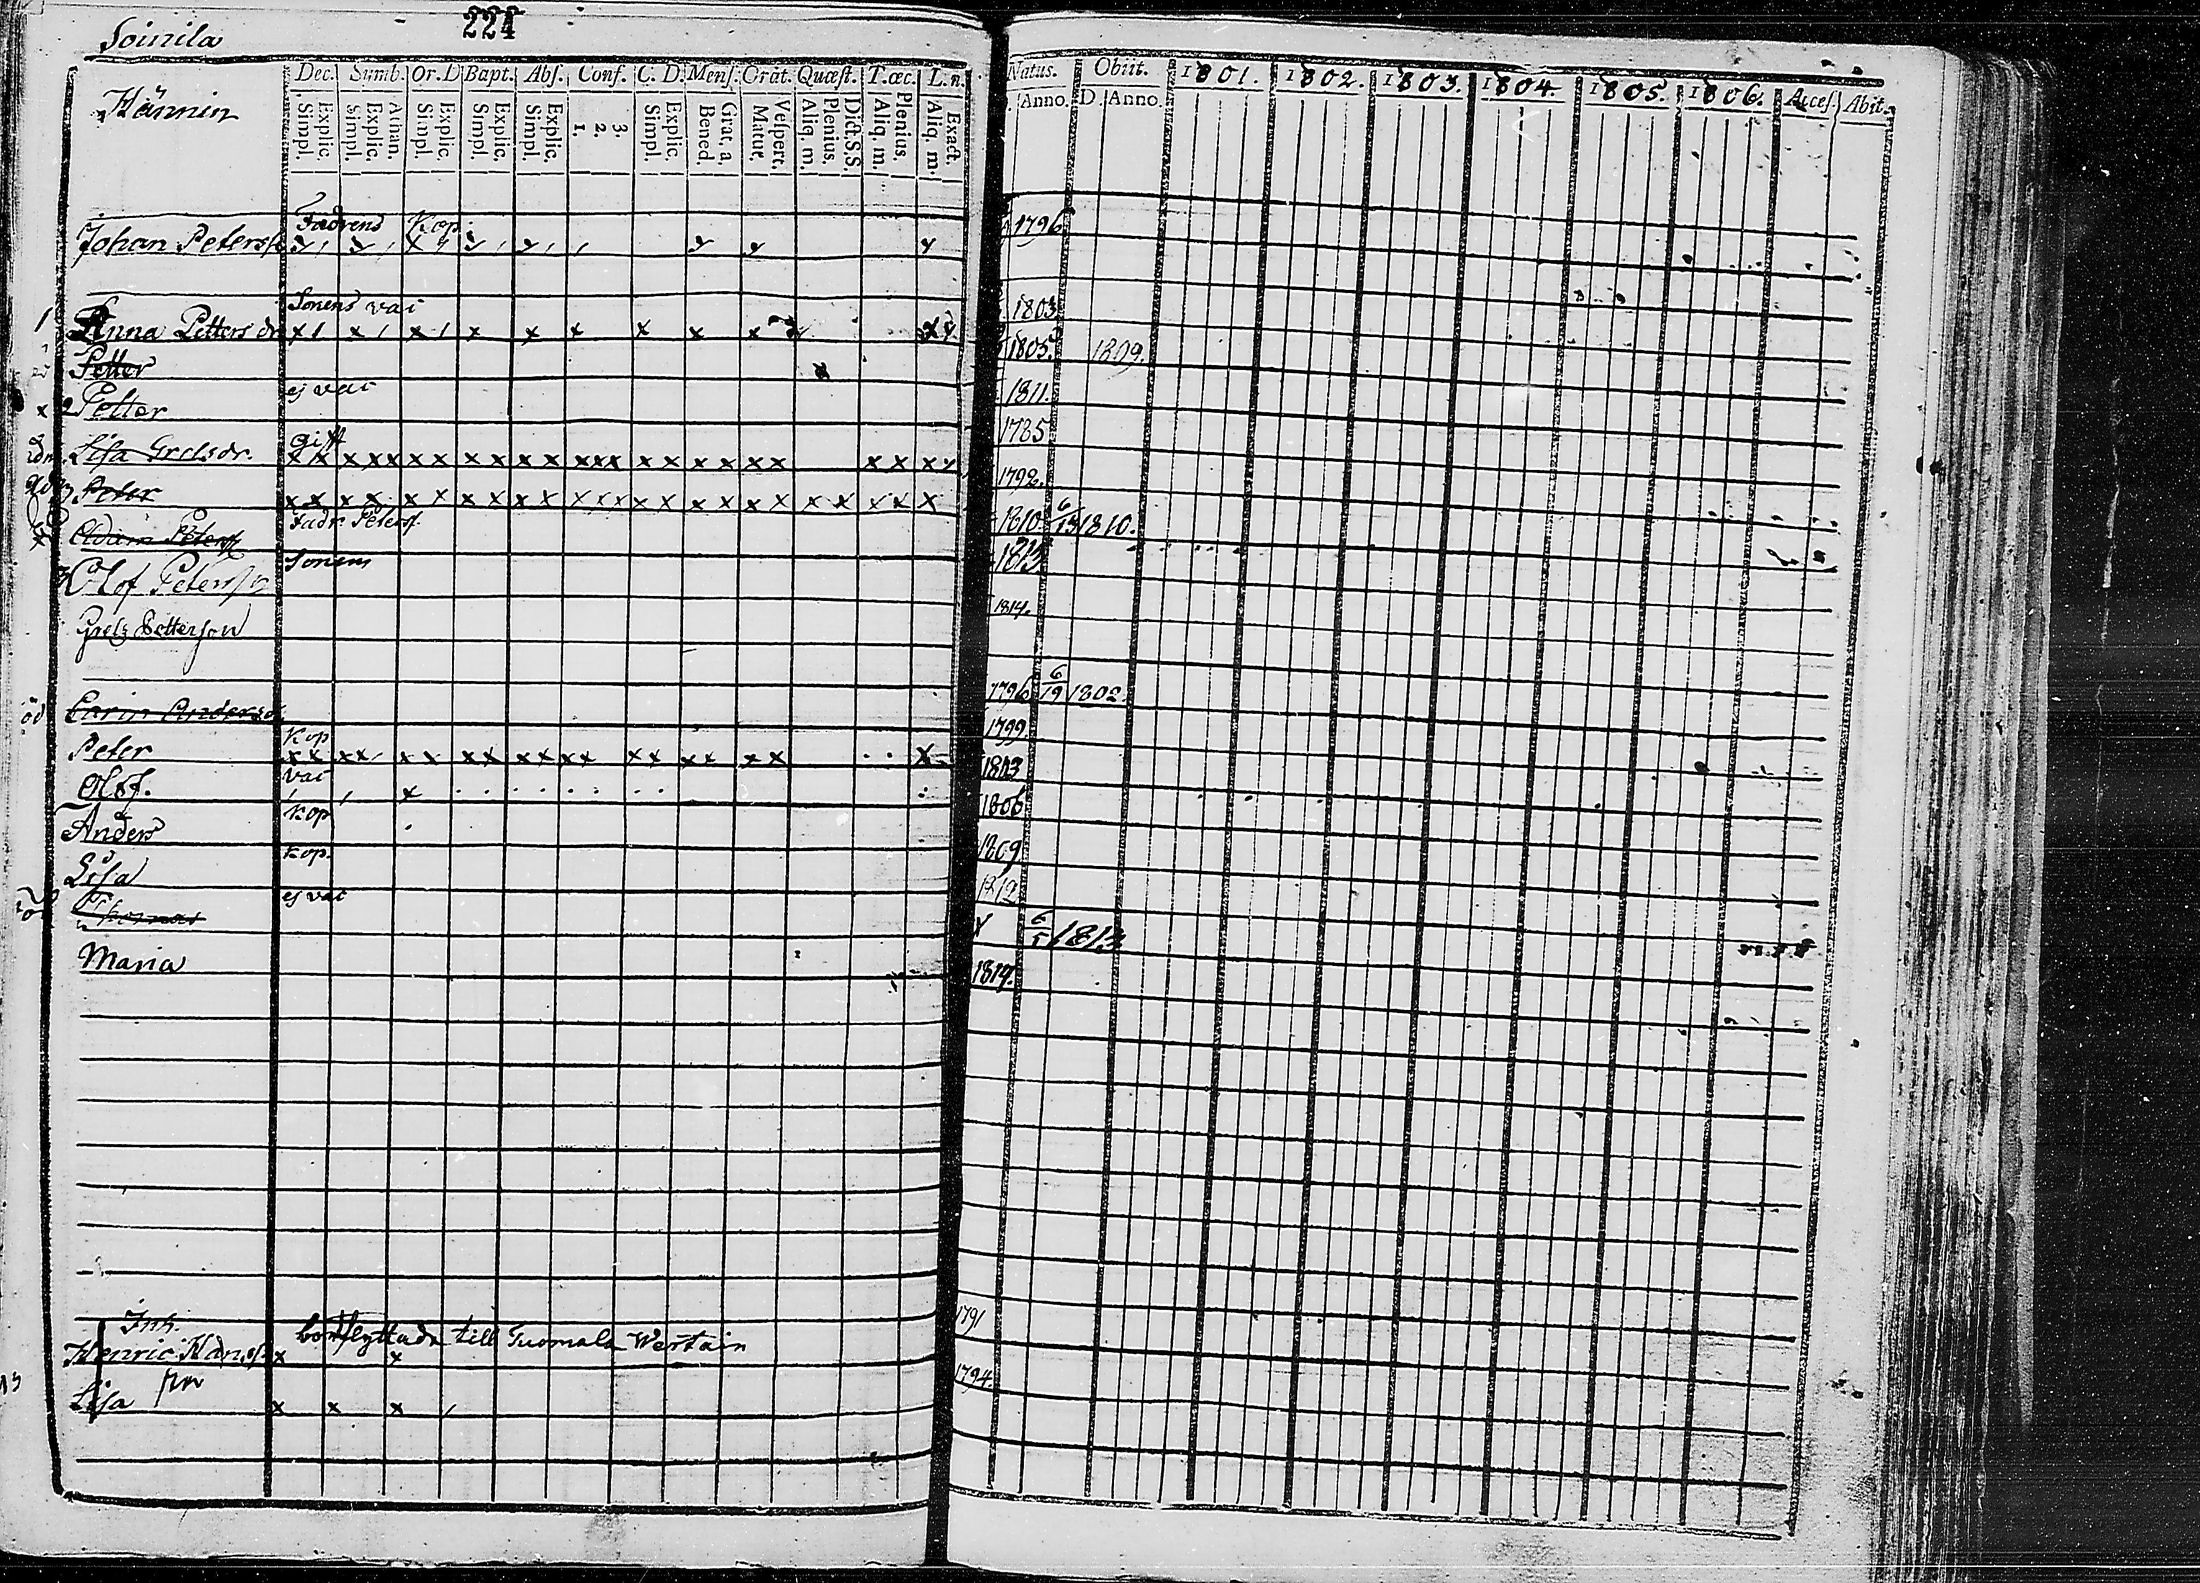 Soinila
224
Hännin
Dec. Symb. Or. D Bapt. Abſ. Conf. C. D. Menſ. Orat. Quæſt. T. œc. L. n.
Simpl. Explic. Simpl. Explic. Athan. Simpl. Explic. Simpl. Explic. Simpl. Explic. 1. 2. 3. Simpl. Explic. Bened. Grat. a. Matut. Veſpert. Aliq. m. Plenius. Dict. S.S. Aliq. m. Plenius. Aliq. m. Exact.
Natus. Obiit. 1801. 1802. 1803. 1804. 1805. 1806. Acceſ. Abit.
Anno. D. Anno.
Fadrens Kop.
Johan Petersſ 1796
Sonens vac
1 Anna Petters dr 1803
Petter 1805. 1809.
ej vac
2 Petter 1811.
gift
Lisa Grelsdr. 1785
Peter 1792.
Fadr. Petersſ.
Adam Petersſ 1810. 6/13 1810.
Sonens
3 Olof Petersſ 1813
Grels Petterson 1814.
öd Carin Andersd. 1796 6/19 1802.
Kop
Peter 1799
vac
Olof. 1803
Kop
Anders 1806
Kop.
Lisa 1809
ej vac
Thomas 1812
6/5 1813
Maria 1814.
Inh.
bortflyttade till Tuomala Wertain
Henric Hansſ. x x 1791
13 Lisa x x x 1794.